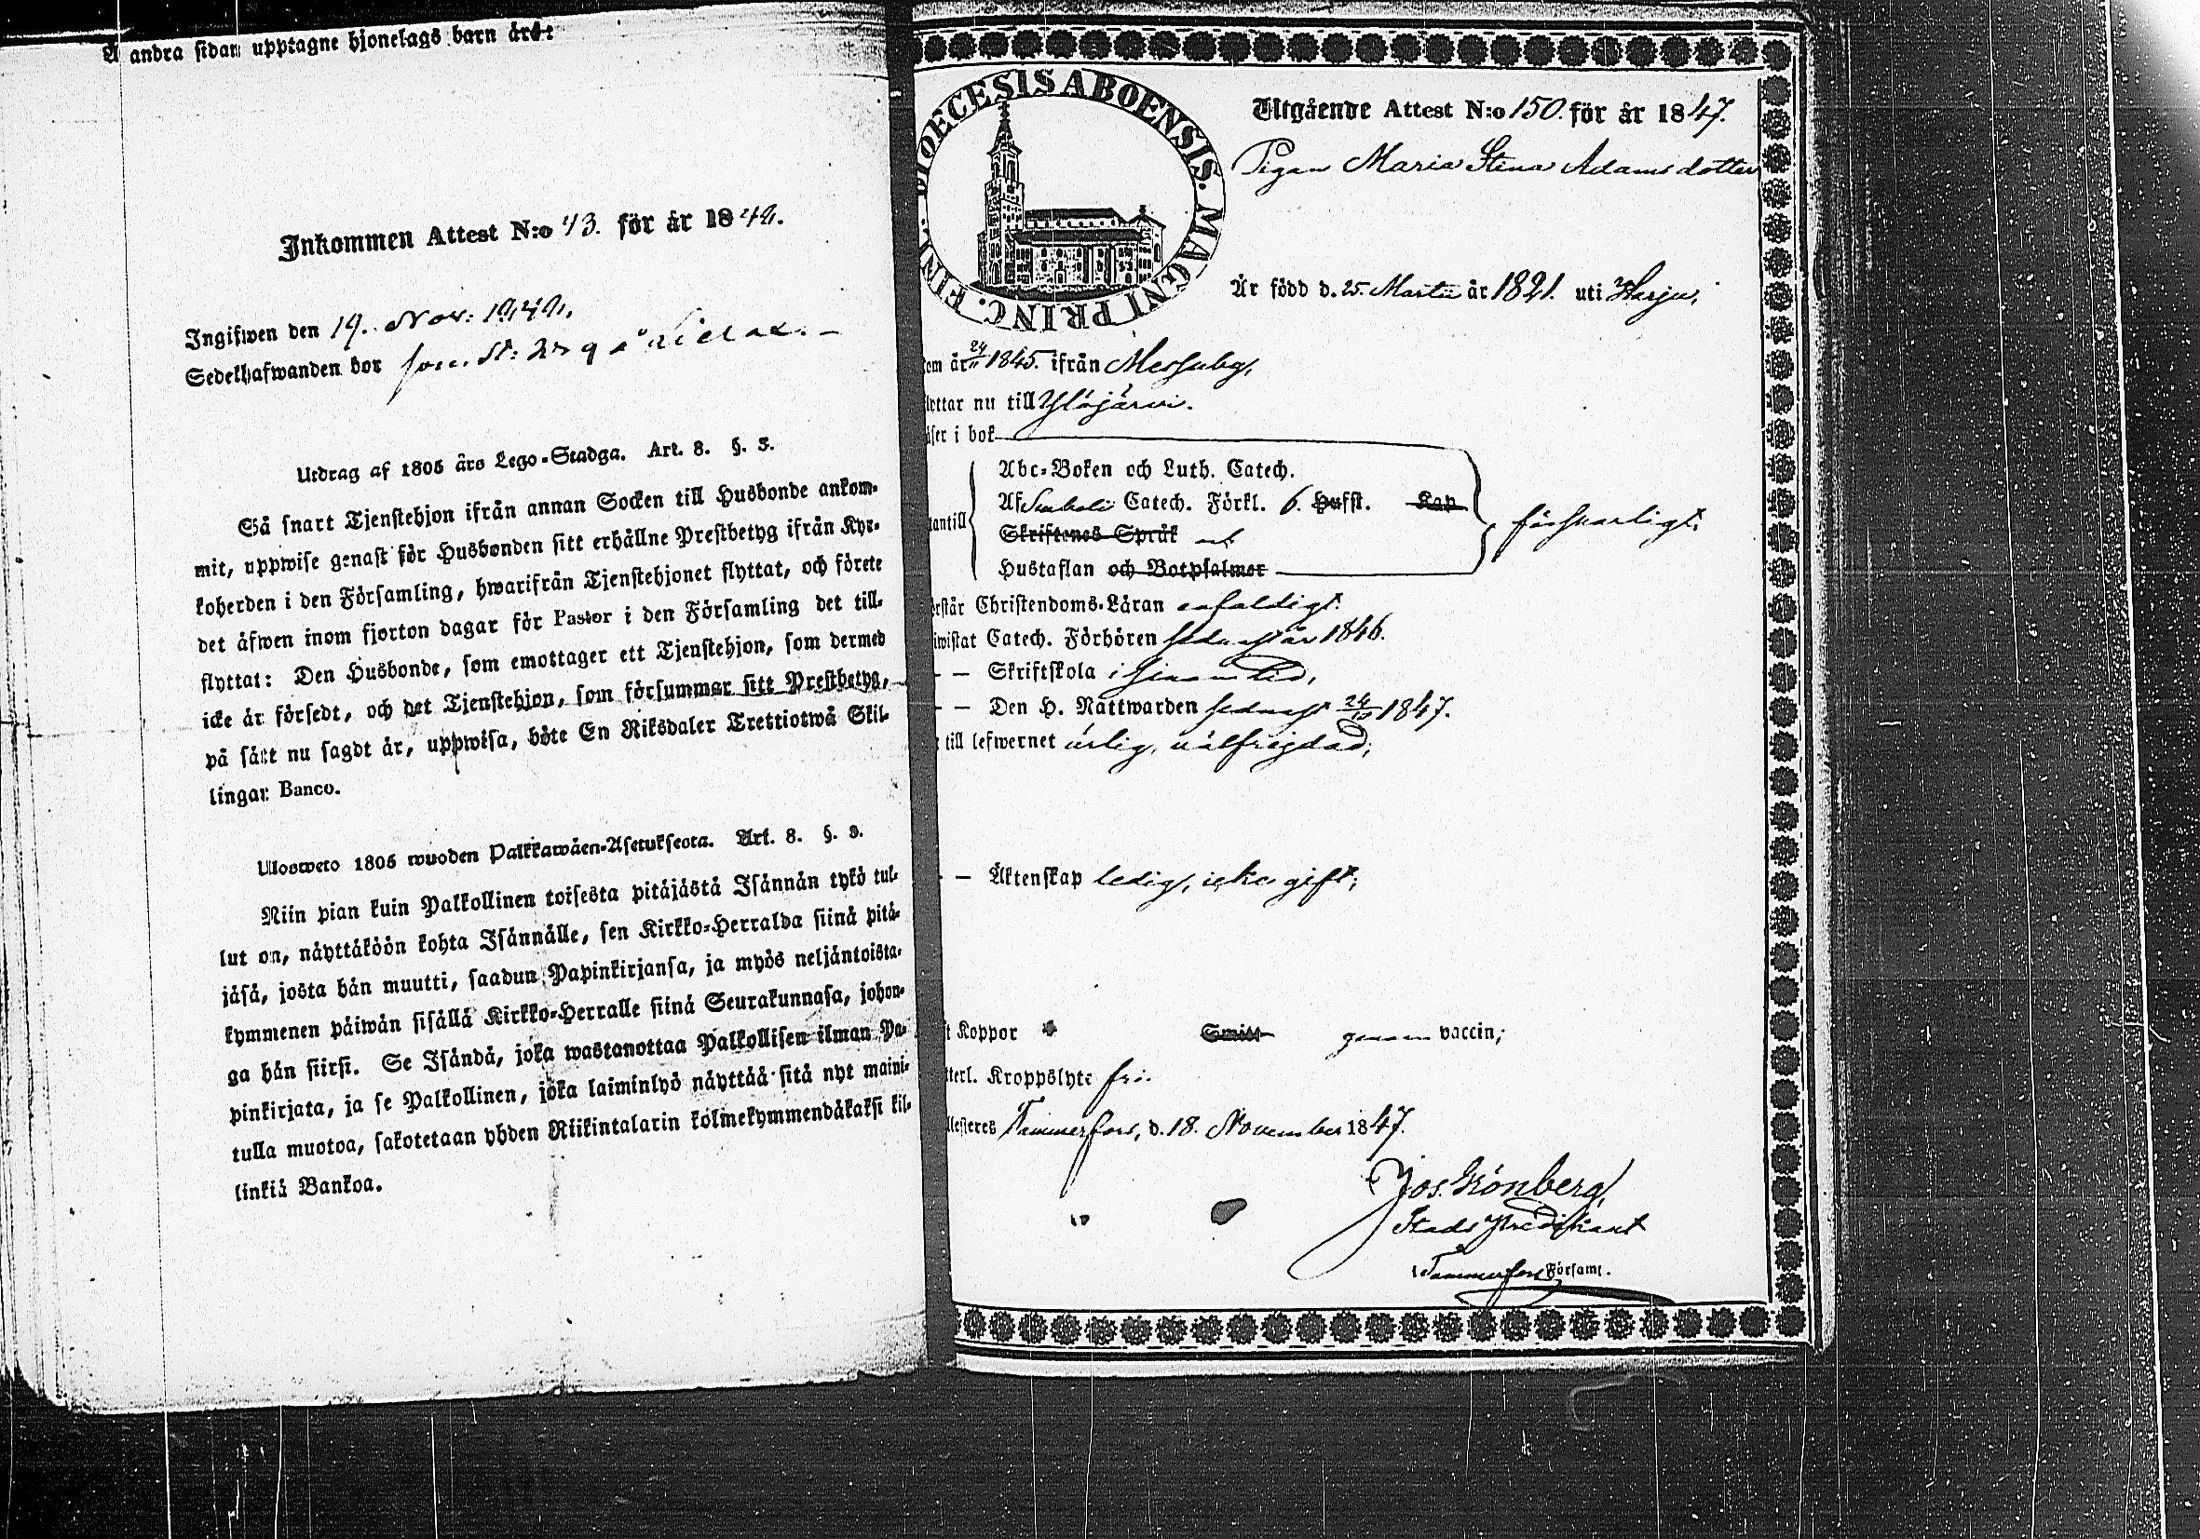 Å andra sidan upptagne hjonelags barn äro:
Inkommen Attest N:o 43. för år 184
Ingifwen den 19. Nov:
Sedelhafwanden bor som St:
Utdrag af 1805 års Lego-Stadga. Art. 8. §. 3.
Så snart Tjenstehjon ifrån annan Socken till Husbonde ankom-
mit, uppwise genast för Husbonden sitt erhållne Prestbetyg ifrån Kyr-
koherden i den Församling, hwarifrån Tjenstehjonet flyttat, och förete
det äfwen inom fjorton dagar för Pastor i den Församling det till-
flyttat: Den Husbonde, som emottager ett Tjenstehjon, som dermed
icke är försedt, och det Tjenstehjon, som försummar sitt Prestbetyg,
på sätt nu sagdt är, uppwisa, böte En Riksdaler Trettiotwå Skil-
lingar Banco.
Ulosweto 1805 wuoden Palkkawäen-Asetuksesta. Art. 8. §. 3.
Niin pian kuin Palkollinen toisesta pitäjästä Isännän tykö tul-
lut on, näyttäköön kohta Isännälle, sen Kirkko-Herralda siinä pitä-
jäsä, josta hän muutti, saadun Papinkirjansa, ja myös neljäntoista-
kymmenen päiwän sisällä Kirkko-Herralle siinä Seurakunnasa, johon-
ga hän siirsi. Se Isändä, joka wastanottaa Palkollisen ilman Pa-
pinkirjata, ja se Palkollinen, joka laiminlyö näyttää sitä nyt maini-
tulla muotoa, sakotetaan yhden Riikintalarin kolmekymmendäkaksi kil-
linkiä Bankoa.
DIOECESIS ABOENSIS. MAGNI PRINC. FINL.
Utgående Attest N:o 150. för år 1847.
Pigan Maria Stina Adamsdotter
Är född d. 25. Martii år 1821. uti Harju,
om år 24/11 1845. ifrån Messuby,
lyttar nu till Ylöjärvi.
äser i bok
Abc-Boken och Luth. Catech.
Af Catech. Förkl. 6. Hufst. Kap
antill Skriftenes Språk och försvarligt.
Hustaflan och Botpsalmer
rstår Christendoms-Läran enfaldigt.
iwistat Catech. Förhören sednast år 1846.
— Skriftskola i sinom tid,
— Den H. Nattwarden sednast 24/10 1847.
till lefwernet ärlig, välfrejdad,
— Äktenskap ledig, icke gift;
t Koppor Smitt genom vaccin;
tterl. Kroppslyte fri.
Testeres Tammerfors, d. 18. November 1847.
Jos. Grönberg,
Stads Predikant
i Tammerfors Församl.